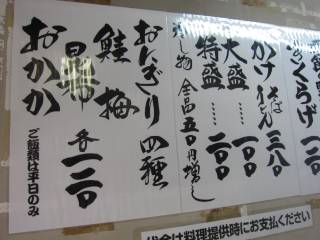 くらげ
かけ そば うどん 三八〇
大盛 …… 一〇〇
特盛 …… 二〇〇
冷し物 全品五〇円増し
おにぎり四種
鮭 梅
昆布 各一二〇
おかか
ご飯類は平日のみ
代金は料理提供時にお支払ください